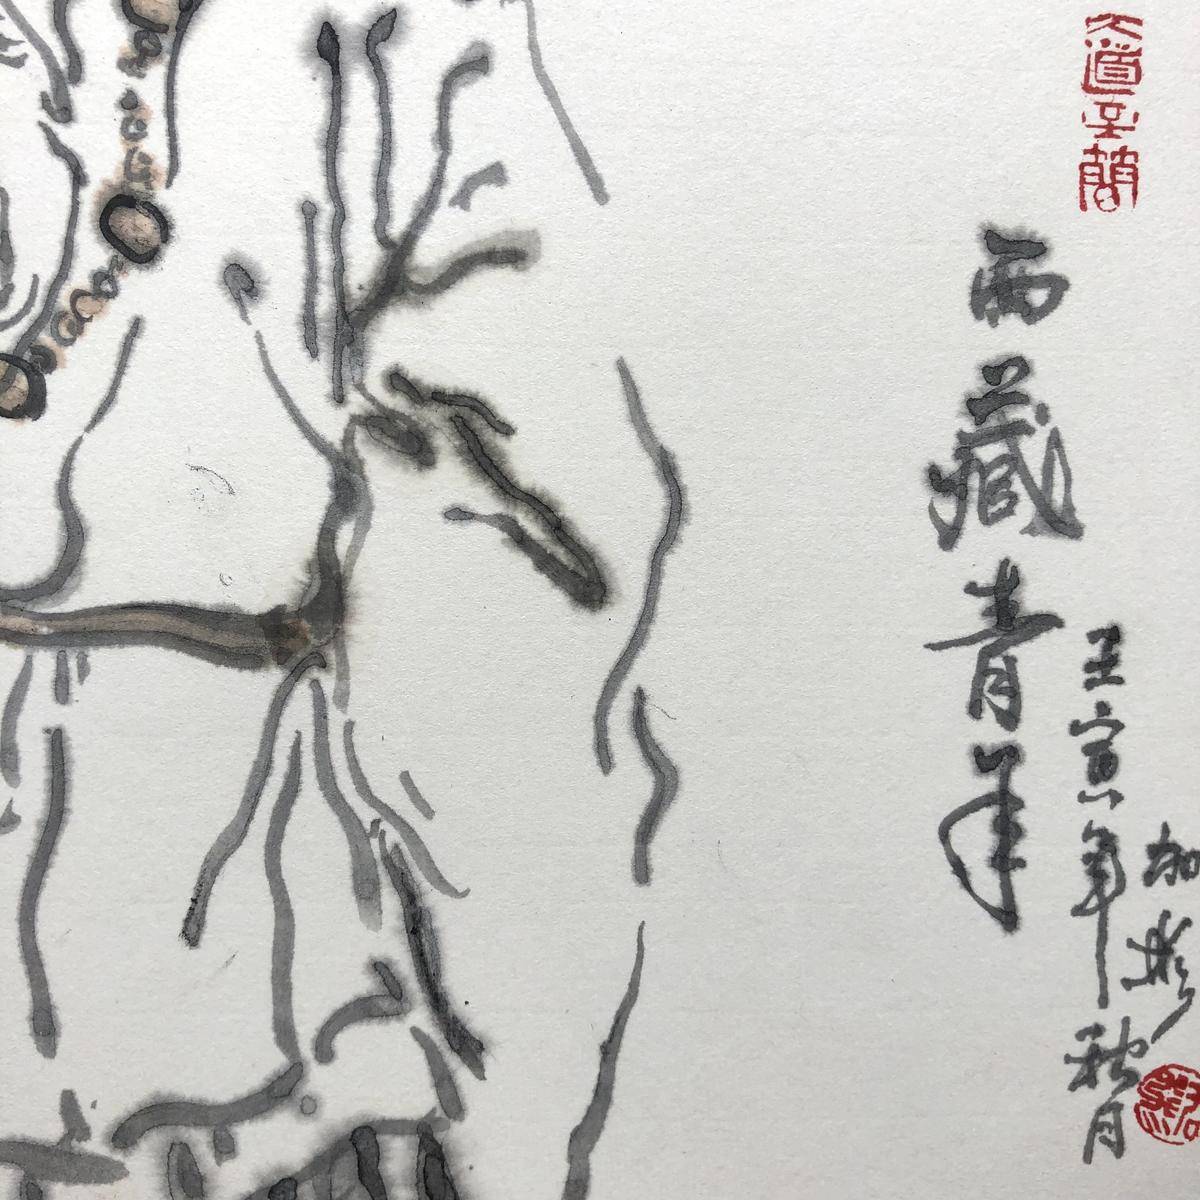 大道至簡
西藏青年
壬寅年秋月